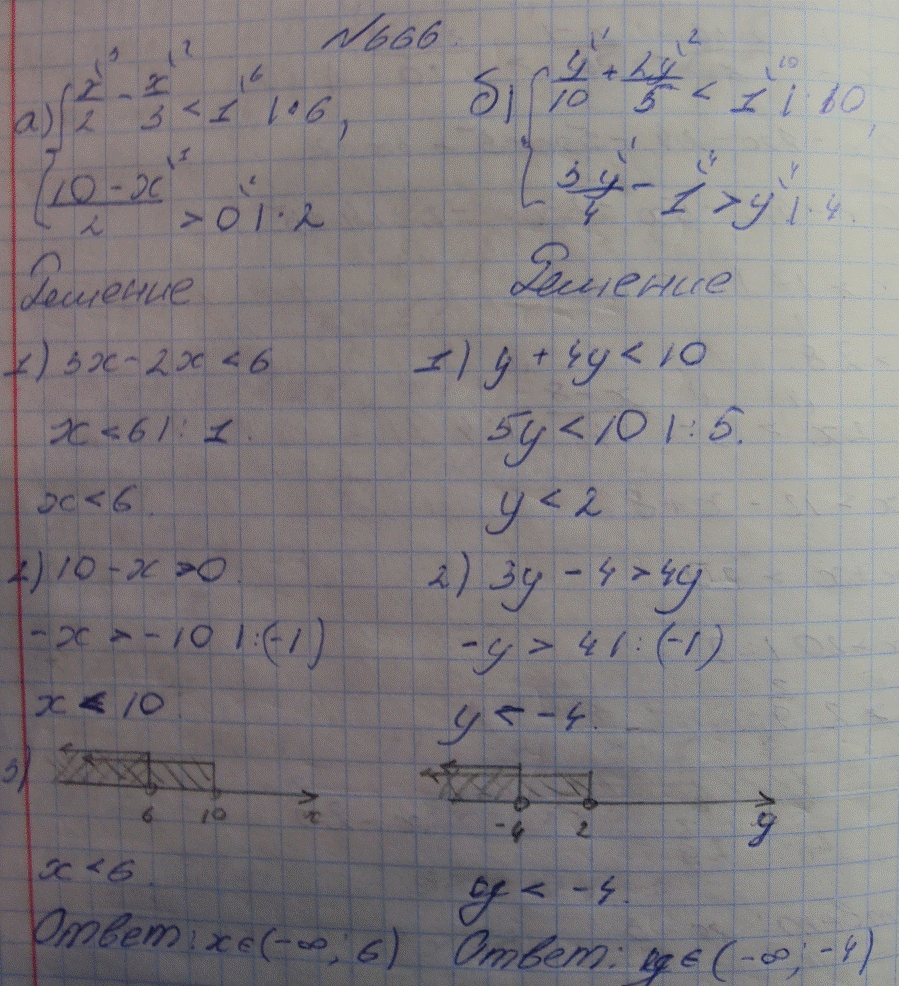 №666.
а) { x/2 \³ - x/3 \² < 1 \⁶ | · 6,
{ (10 - x)/2 \¹ > 0 \² | · 2
Решение
1) 3x - 2x < 6
x < 6 | : 1.
x < 6.
2) 10 - x > 0.
-x > -10 | : (-1)
x < 10.
3)
6 10 x
x < 6.
Ответ: x ∈ (-∞; 6)
б) { y/10 \¹ + 2y/5 \² < 1 \¹⁰ | · 10,
{ 3y/4 \¹ - 1 \⁴ > y \⁴ | · 4.
Решение
1) y + 4y < 10
5y < 10 | : 5.
y < 2
2) 3y - 4 > 4y
-y > 4 | : (-1)
y < -4.
-4 2 y
y < -4.
Ответ: y ∈ (-∞; -4)